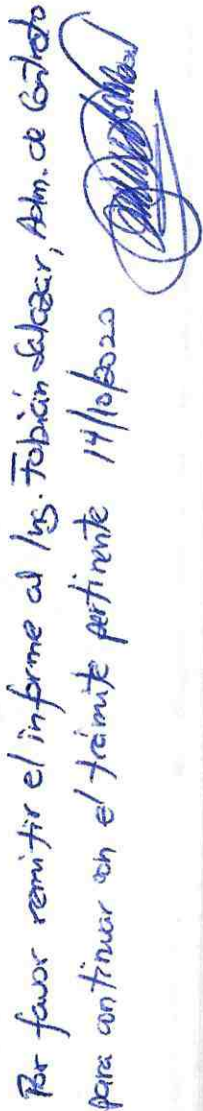 Por favor remitir el informe al Ing. Fabián Salazar, Adm. de Contrato
para continuar con el trámite pertinente 14/10/2020